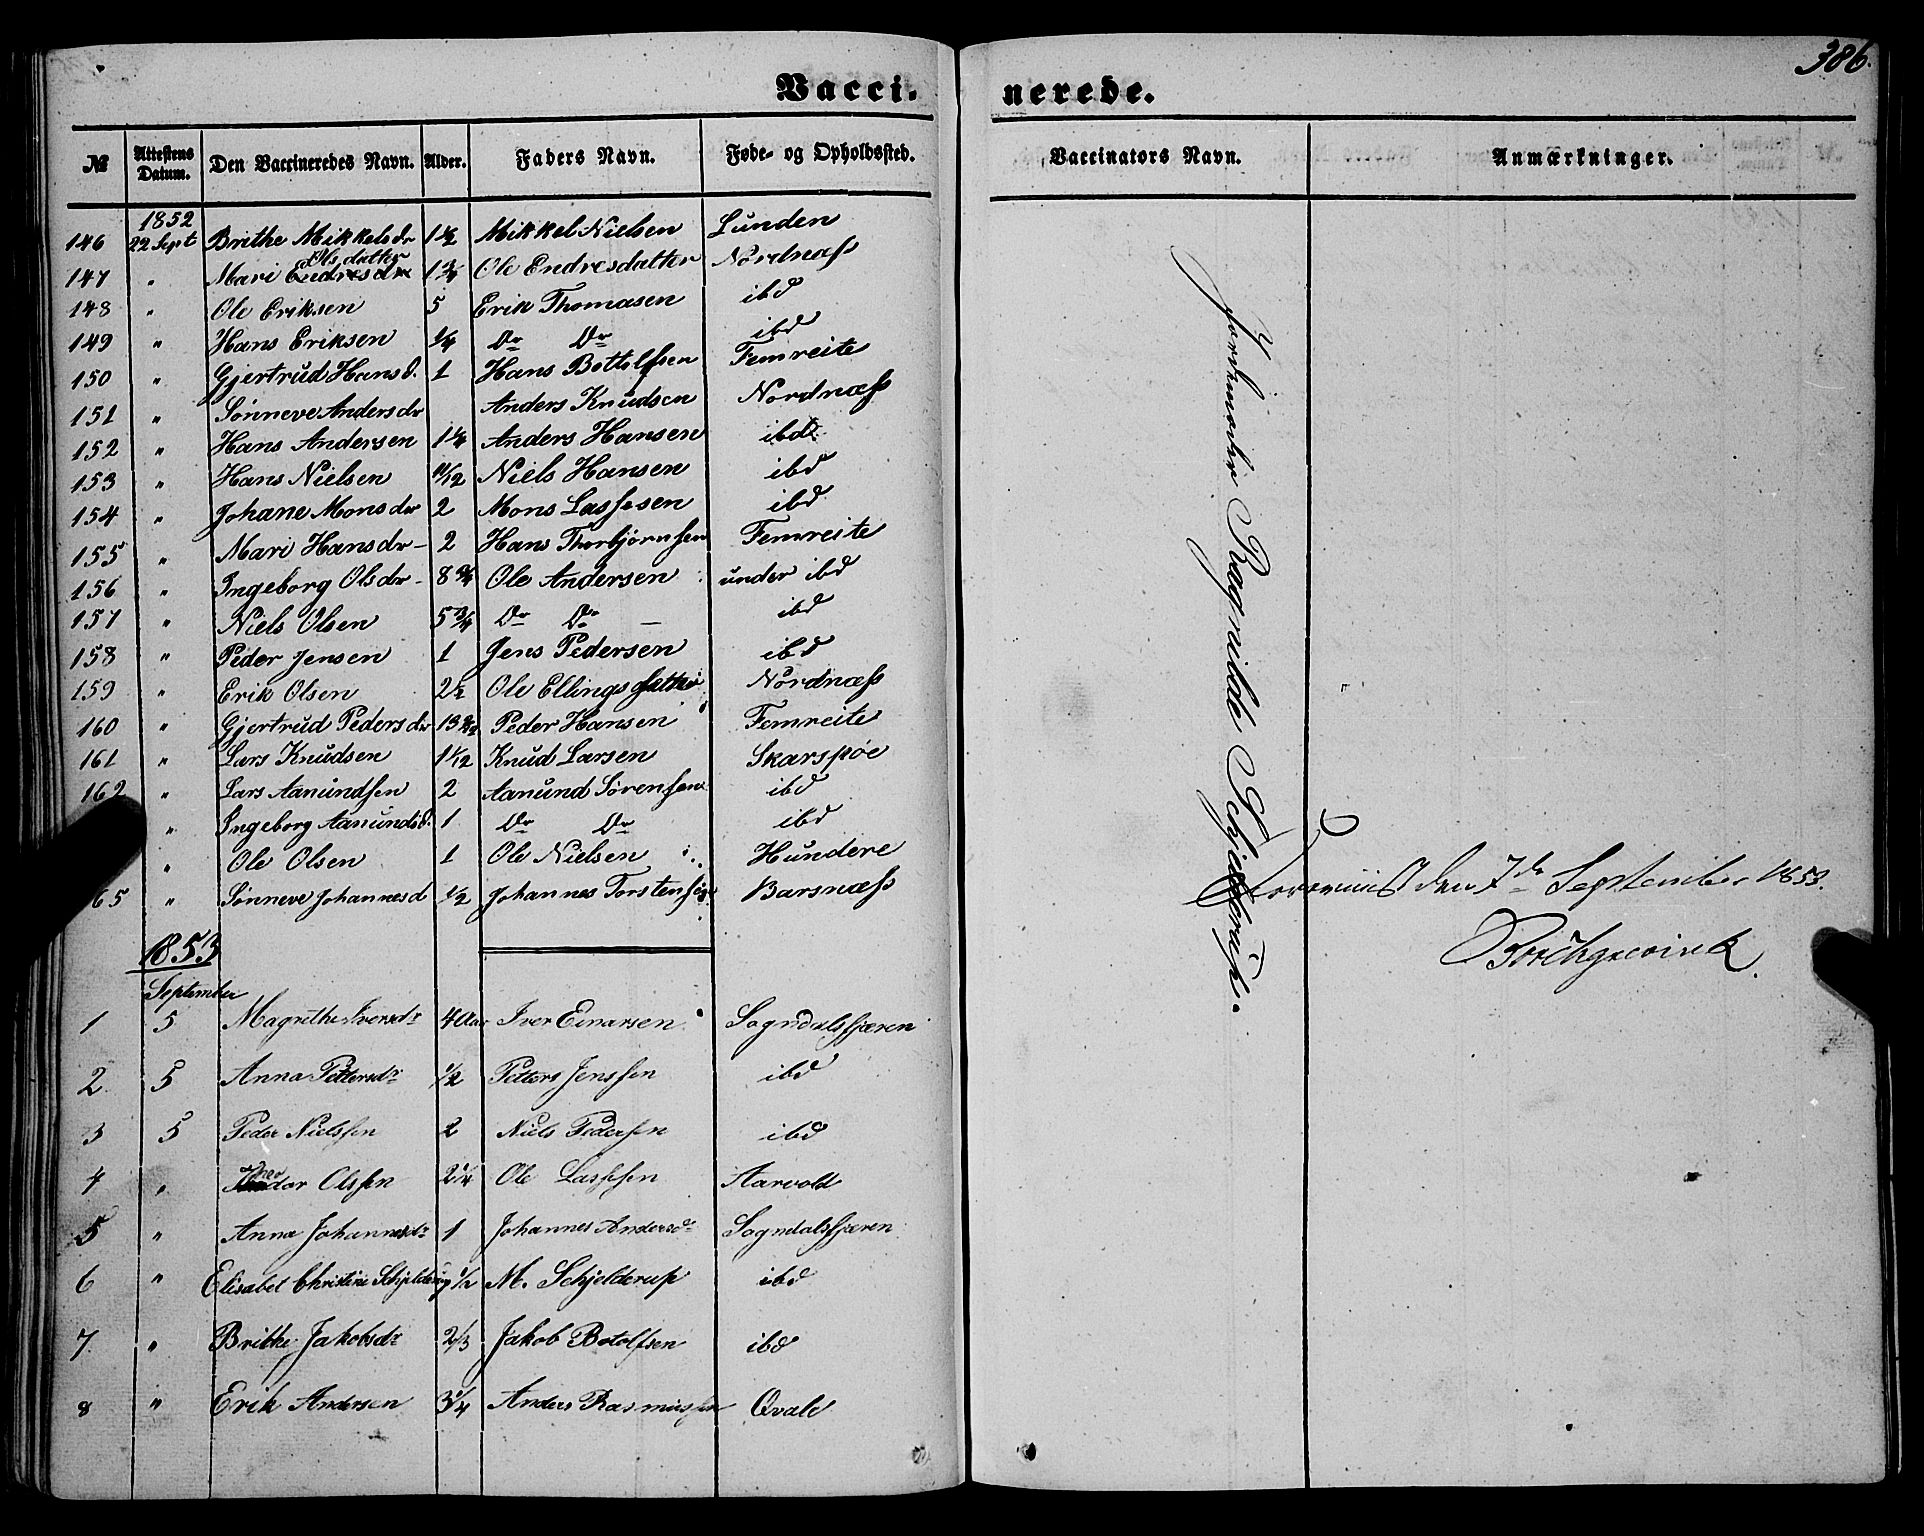 386.
Vaccinerede.
№ Attestens Datum. Den Vaccineredes Navn. Alder. Faders Navn. Føde- og Opholdssted. Vaccinators Navn. Anmærkninger.
1852
146 22 Sept Brithe Mikkelsdr 1½ Mikkel Nielsen Lunden
Olsdatter
147 " Mari Endresdr 1¾ Ole Endresdatter Nordnæss
148 " Ole Eriksen 5 Erik Thomasen ibd
149 " Hans Eriksen ¼ Do Do ibd
150 " Gjertrud Hansd. 1 Hans Bottolfsen Femreite
151 " Sønneve Andersdr Anders Knudsen Nordnæss
152 " Hans Andersen 1¼ Anders Hansen ibd
153 " Hans Nielsen 11/12 Niels Hansen ibd
154 " Johane Monsdr 2 Mons Lassesen ibd
155 " Mari Hansdr 2 Hans Thorbjørnsen Femreite
156 " Ingeborg Olsdr 8¾ Ole Andersen under ibd
157 " Niels Olsen 5¾ Do Do — ibd
158 " Peder Jensen 1 Jens Pedersen ibd
159 " Erik Olsen 2½ Ole Ellings Nordnæss
160 " Gjertrud Pedersdr 13 Peder Hansen Femreite
161 " Lars Knudsen 1 1/12 Knud Larsen Skarspøe
162 " Lars Aamundsen 2 Aamund Sørensen ibd
" Ingeborg Aamundsd. 1 Do Do ibd
" Ole Olsen 1 Ole Nielsen Hundere
65 " Sønneve Johannesd ½ Johannes Torstensen Barsnæss
1853
September
1 5 Magrethe Iversdr 4 Aar Iver Einarsen Sogndalsfjæren
2 5 Anna Pettersdr ½ Petters Jenssen ibd
3 5 Peder Nielssen 2 Niels Pederssen ibd
4 " Olssen 2¼ Ole Lasssen Aarvold
5 " Anna Johannesdr 1 Johannes Andersd Sogndalsfjæren
6 " Elisabet Christine Schjelderup ½ M. Schjelderup ibd
7 " Brithe Jakobsdr 2/3 Jakob Botolfsen ibd
8 " Erik Andersen 3¼ Anders Rasmussen Qvale
Jordemoder Ragnilde Schjelderup.
den 7de September 1853.
Borchgrevink